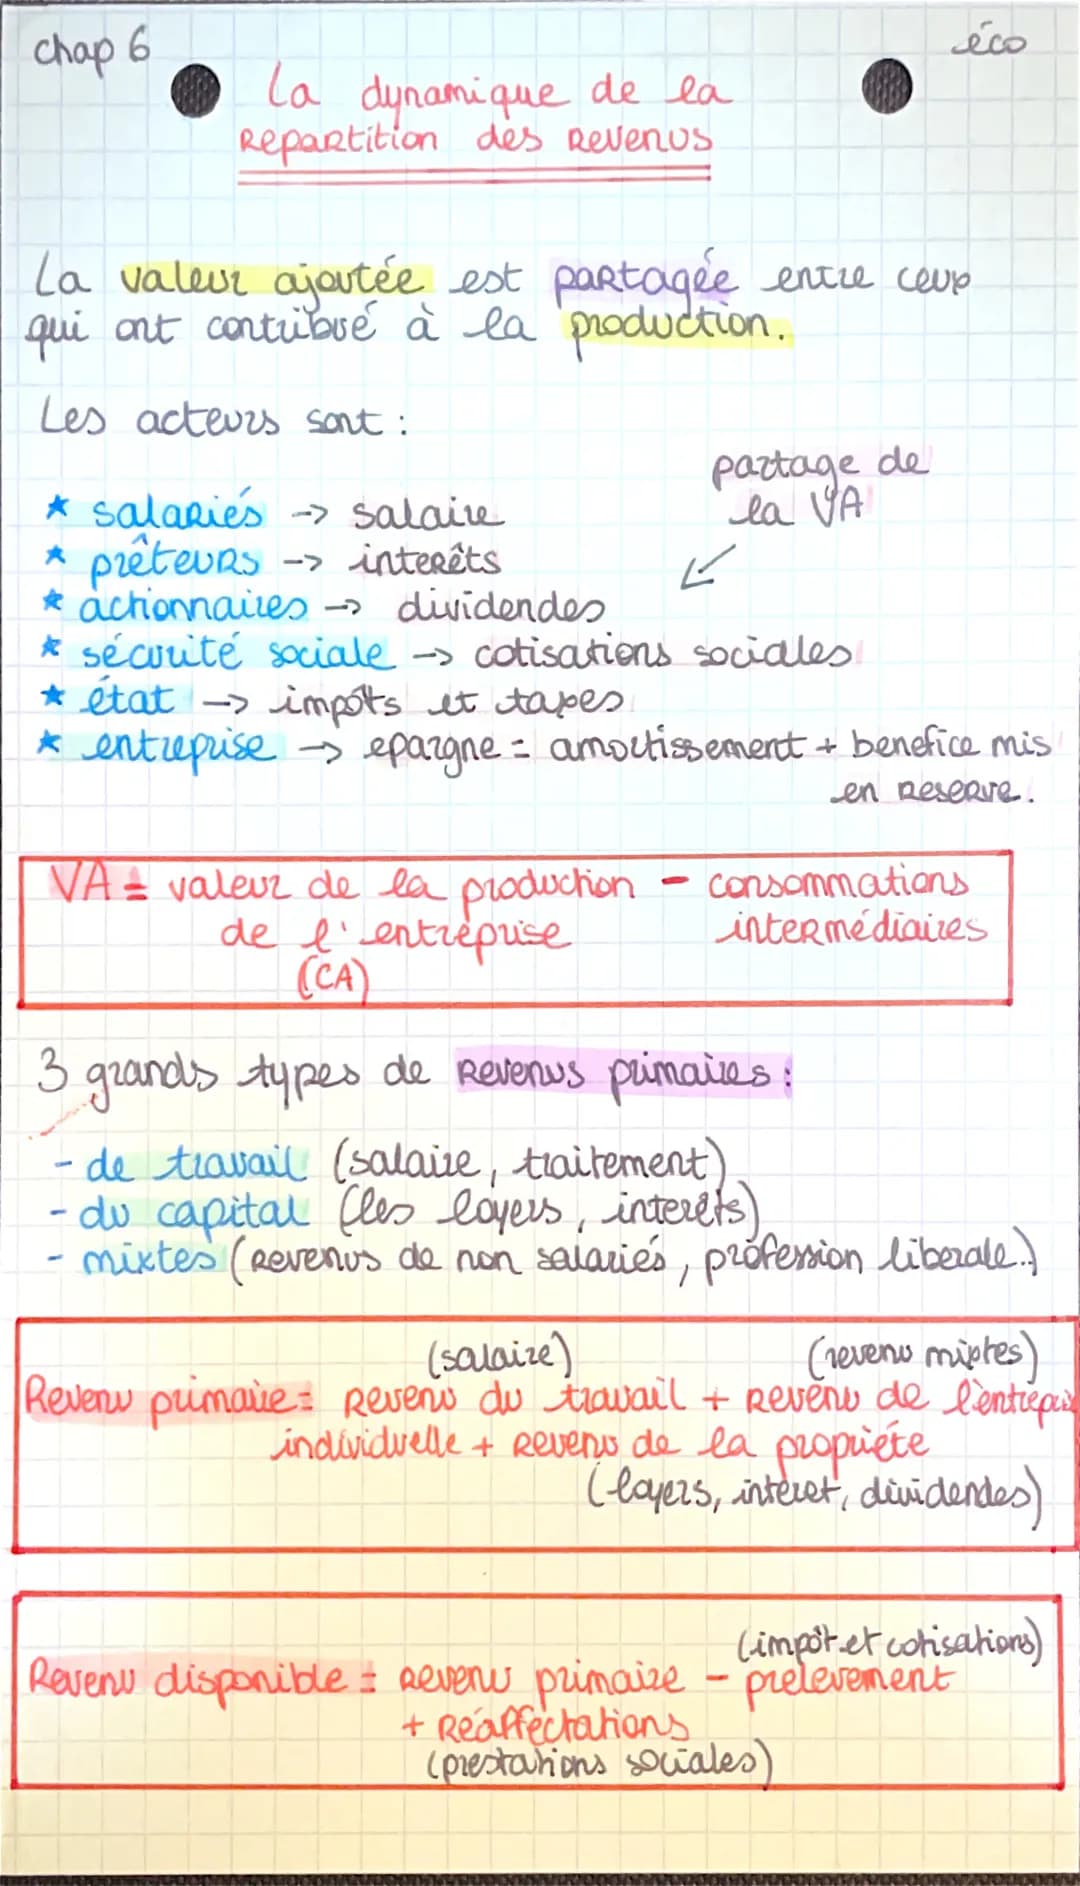 chap 6
éco
La dynamique de la
Repartition des Revenus
La valeur ajoutée est partagée entre ceux
qui ont contribué à la production.
Les acteurs sont :
partage de
la VA
★ salariés -> salaire
★ prêteurs -> interêts
★ actionnaires -> dividendes
★ sécurité sociale -> cotisations sociales
★ état -> impôts et taxes
★ entreprise -> epargne = amortissement + benefice mis
en Reserve.
VA = valeur de la production - consommations
de l'entreprise intermédiaires
(CA)
3 grands types de Revenus primaires :
- de travail (salaire, traitement)
- du capital (les loyers, interêts)
- mixtes (Revenus de non salariés, profession liberale..)
(salaire) (revenu mixtes)
Revenu primaire = Revenu du travail + Revenu de l'entrepris
individuelle + Revenu de la propriéte
(loyers, intêret, dividendes)
(impôt et cotisations)
Revenu disponible = Revenu primaire - prelevement
+ Réaffectations
(prestations sociales)